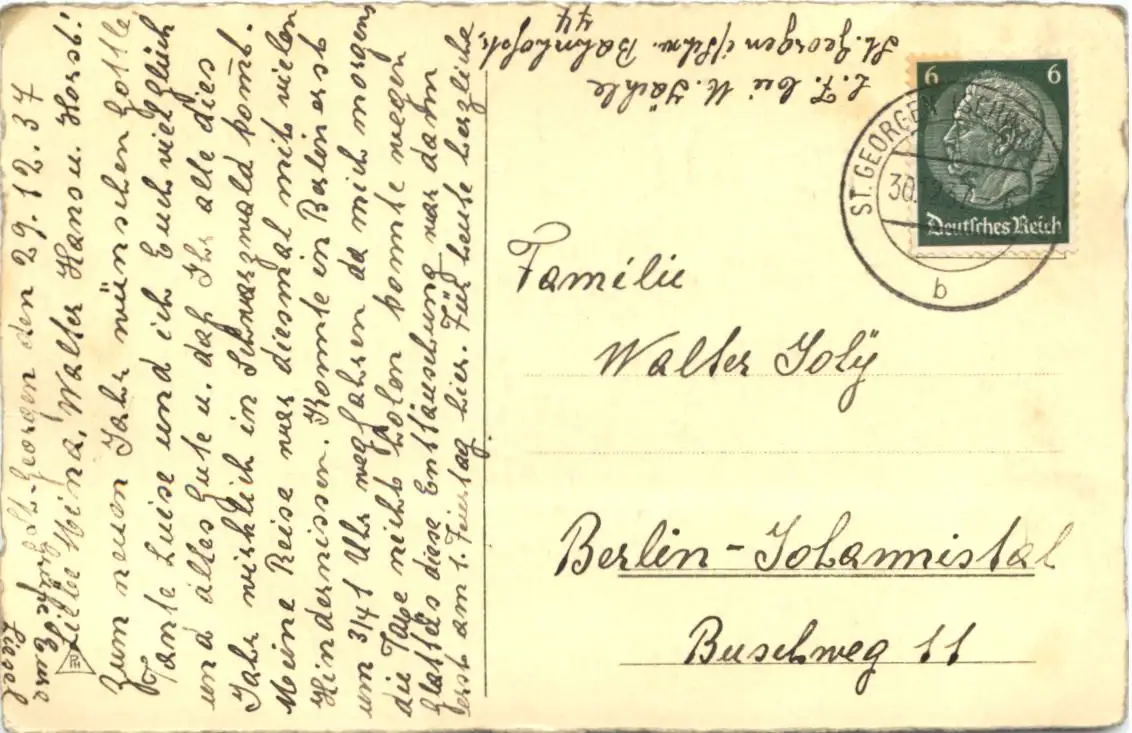 St. Georgen den 29.12.37
Liebe Mina, Walter Hans u. Horst!
Zum neuen Jahr wünschen Lotte,
Tante Luise und ich Euch viel Glück
und alles Gute u. daß Ihr alle dies
Jahr wirklich in Schwarzwald kom̄t.
Meine Reise war diesmal mit vielen
Hindernissen. Konnte in Berlin erst
um 3/41 Uhr wegfahren da mich morgens
die Taxe nicht holen konnte wegen
Glatteis diese Enttäuschung war dann
erst am 1. Feiertag hier. Für heute herzliche
Grüße Eure
Liesel
L. F. bei M. Jäckle
St. Georgen i/Schw. Bahnhofstr.
44
6 6
Deutsches Reich
ST. GEORGEN (SCHWARZW
30.12.
b
Familie
Walter Joly
Berlin-Johannistal
Buschweg 11
PM